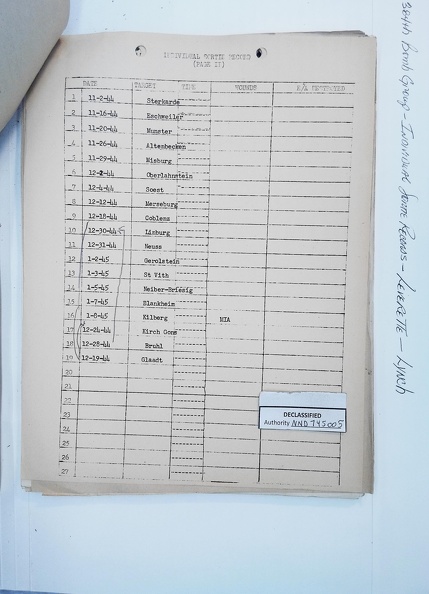 INDIVIDUAL SORTIE RECORD
(PAGE II)
DATE TARGET TIME WOUNDS E/A DESTROYED
1 11-2-44 Sterkarde
2 11-16-44 Eschweiler
3 11-20-44 Munster
4 11-26-44 Altenbecken
5 11-29-44 Misburg
6 12-2-44 Oberlahnstein
7 12-4-44 Soest
8 12-12-44 Merseburg
9 12-18-44 Coblenz
10 12-30-44 Limburg
11 12-31-44 Neuss
12 1-2-45 Gerolstein
13 1-3-45 St Vith
14 1-5-45 Neiber-Briesig
15 1-7-45 Blankheim
16 1-8-45 Kilberg MIA
17 12-24-44 Kirch Gons
18 12-28-44 Bruhl
19 12-19-44 Glaadt
20
21
22
23
24
25
26
27
DECLASSIFIED
Authority NND 745005
384th Bomb Group - Individual Sortie Records - Leverette - Lynch